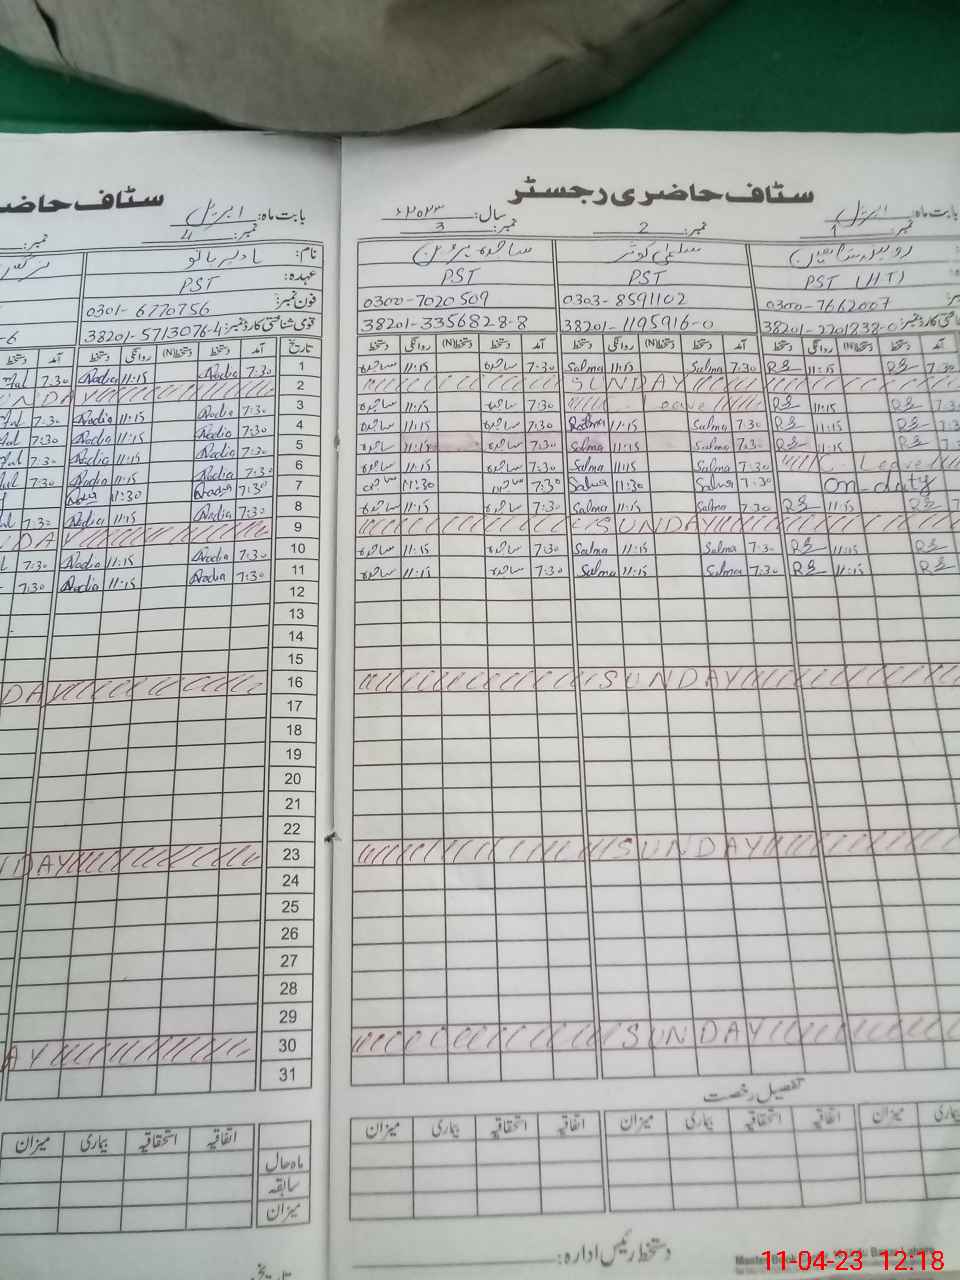 سٹاف حاضری رجسٹر
بابت ماہ: اپریل سال: ۲۰۲۳ء
نمبر: 1 نمبر: 2 نمبر: 3
سلمیٰ کوثر ساجدہ پروین
PST (HT) PST PST
0300-7662007 0303-8591102 0300-7020509
38201-2201838-0 38201-1195916-0 38201-3356828-8
آمد دستخط دستخط(N) روانگی دستخط آمد دستخط دستخط(N) روانگی دستخط آمد دستخط دستخط(N) روانگی دستخط
7:30 RS 11:15 RS 7:30 Salma 11:15 Salma 7:30 ساجدہ 11:15 ساجدہ
SUNDAY
RS 11:15 RS Leave 7:30 ساجدہ 11:15 ساجدہ
RS 11:15 RS 7:30 Salma 11:15 Salma 7:30 ساجدہ 11:15 ساجدہ
RS 11:15 RS 7:30 Salma 11:15 Salma 7:30 ساجدہ 11:15 ساجدہ
C. Leave 7:30 Salma 11:15 Salma 7:30 ساجدہ 11:15 ساجدہ
On-duty 7:30 Salma 11:30 Salma 7:30 ساجدہ 11:30 ساجدہ
RS 11:15 RS 7:30 Salma 11:15 Salma 7:30 ساجدہ 11:15 ساجدہ
SUNDAY
RS 11:15 RS 7:30 Salma 11:15 Salma 7:30 ساجدہ 11:15 ساجدہ
RS 11:15 RS 7:30 Salma 11:15 Salma 7:30 ساجدہ 11:15 ساجدہ
SUNDAY
SUNDAY
SUNDAY
تفصیل رخصت
بیماری میزان اتفاقیہ استحقاقیہ بیماری میزان اتفاقیہ استحقاقیہ بیماری میزان
دستخط رئیس ادارہ:
سٹاف حاضر
بابت ماہ: اپریل
نمبر: 4 نمبر:
نام:
عہدہ: PST
فون نمبر: 0301-6770756
قومی شناختی کارڈ نمبر: 38201-5713076-4 -6
تاریخ آمد دستخط دستخط(N) روانگی دستخط آمد دستخط
1 7:30 Nadia 11:15 Nadia 7:30
2 NDAY
3 7:30 Nadia 11:15 Nadia 7:30
4 7:30 Nadia 11:15 Nadia 7:30
5 7:30 Nadia 11:15 Nadia 7:30
6 7:30 Nadia 11:15 Nadia 7:30
7 7:30 Nadia 11:30 Nadia
8 7:30 Nadia 11:15 Nadia 7:30
9 DAY
10 7:30 Nadia 11:15 Nadia 7:30
11 7:30 Nadia 11:15 Nadia 7:30
12
13
14
15
16 DAY
17
18
19
20
21
22
23 NDAY
24
25
26
27
28
29
30 AY
31
اتفاقیہ استحقاقیہ بیماری میزان
ماہ حال
سابقہ
میزان
11-04-23 12:18